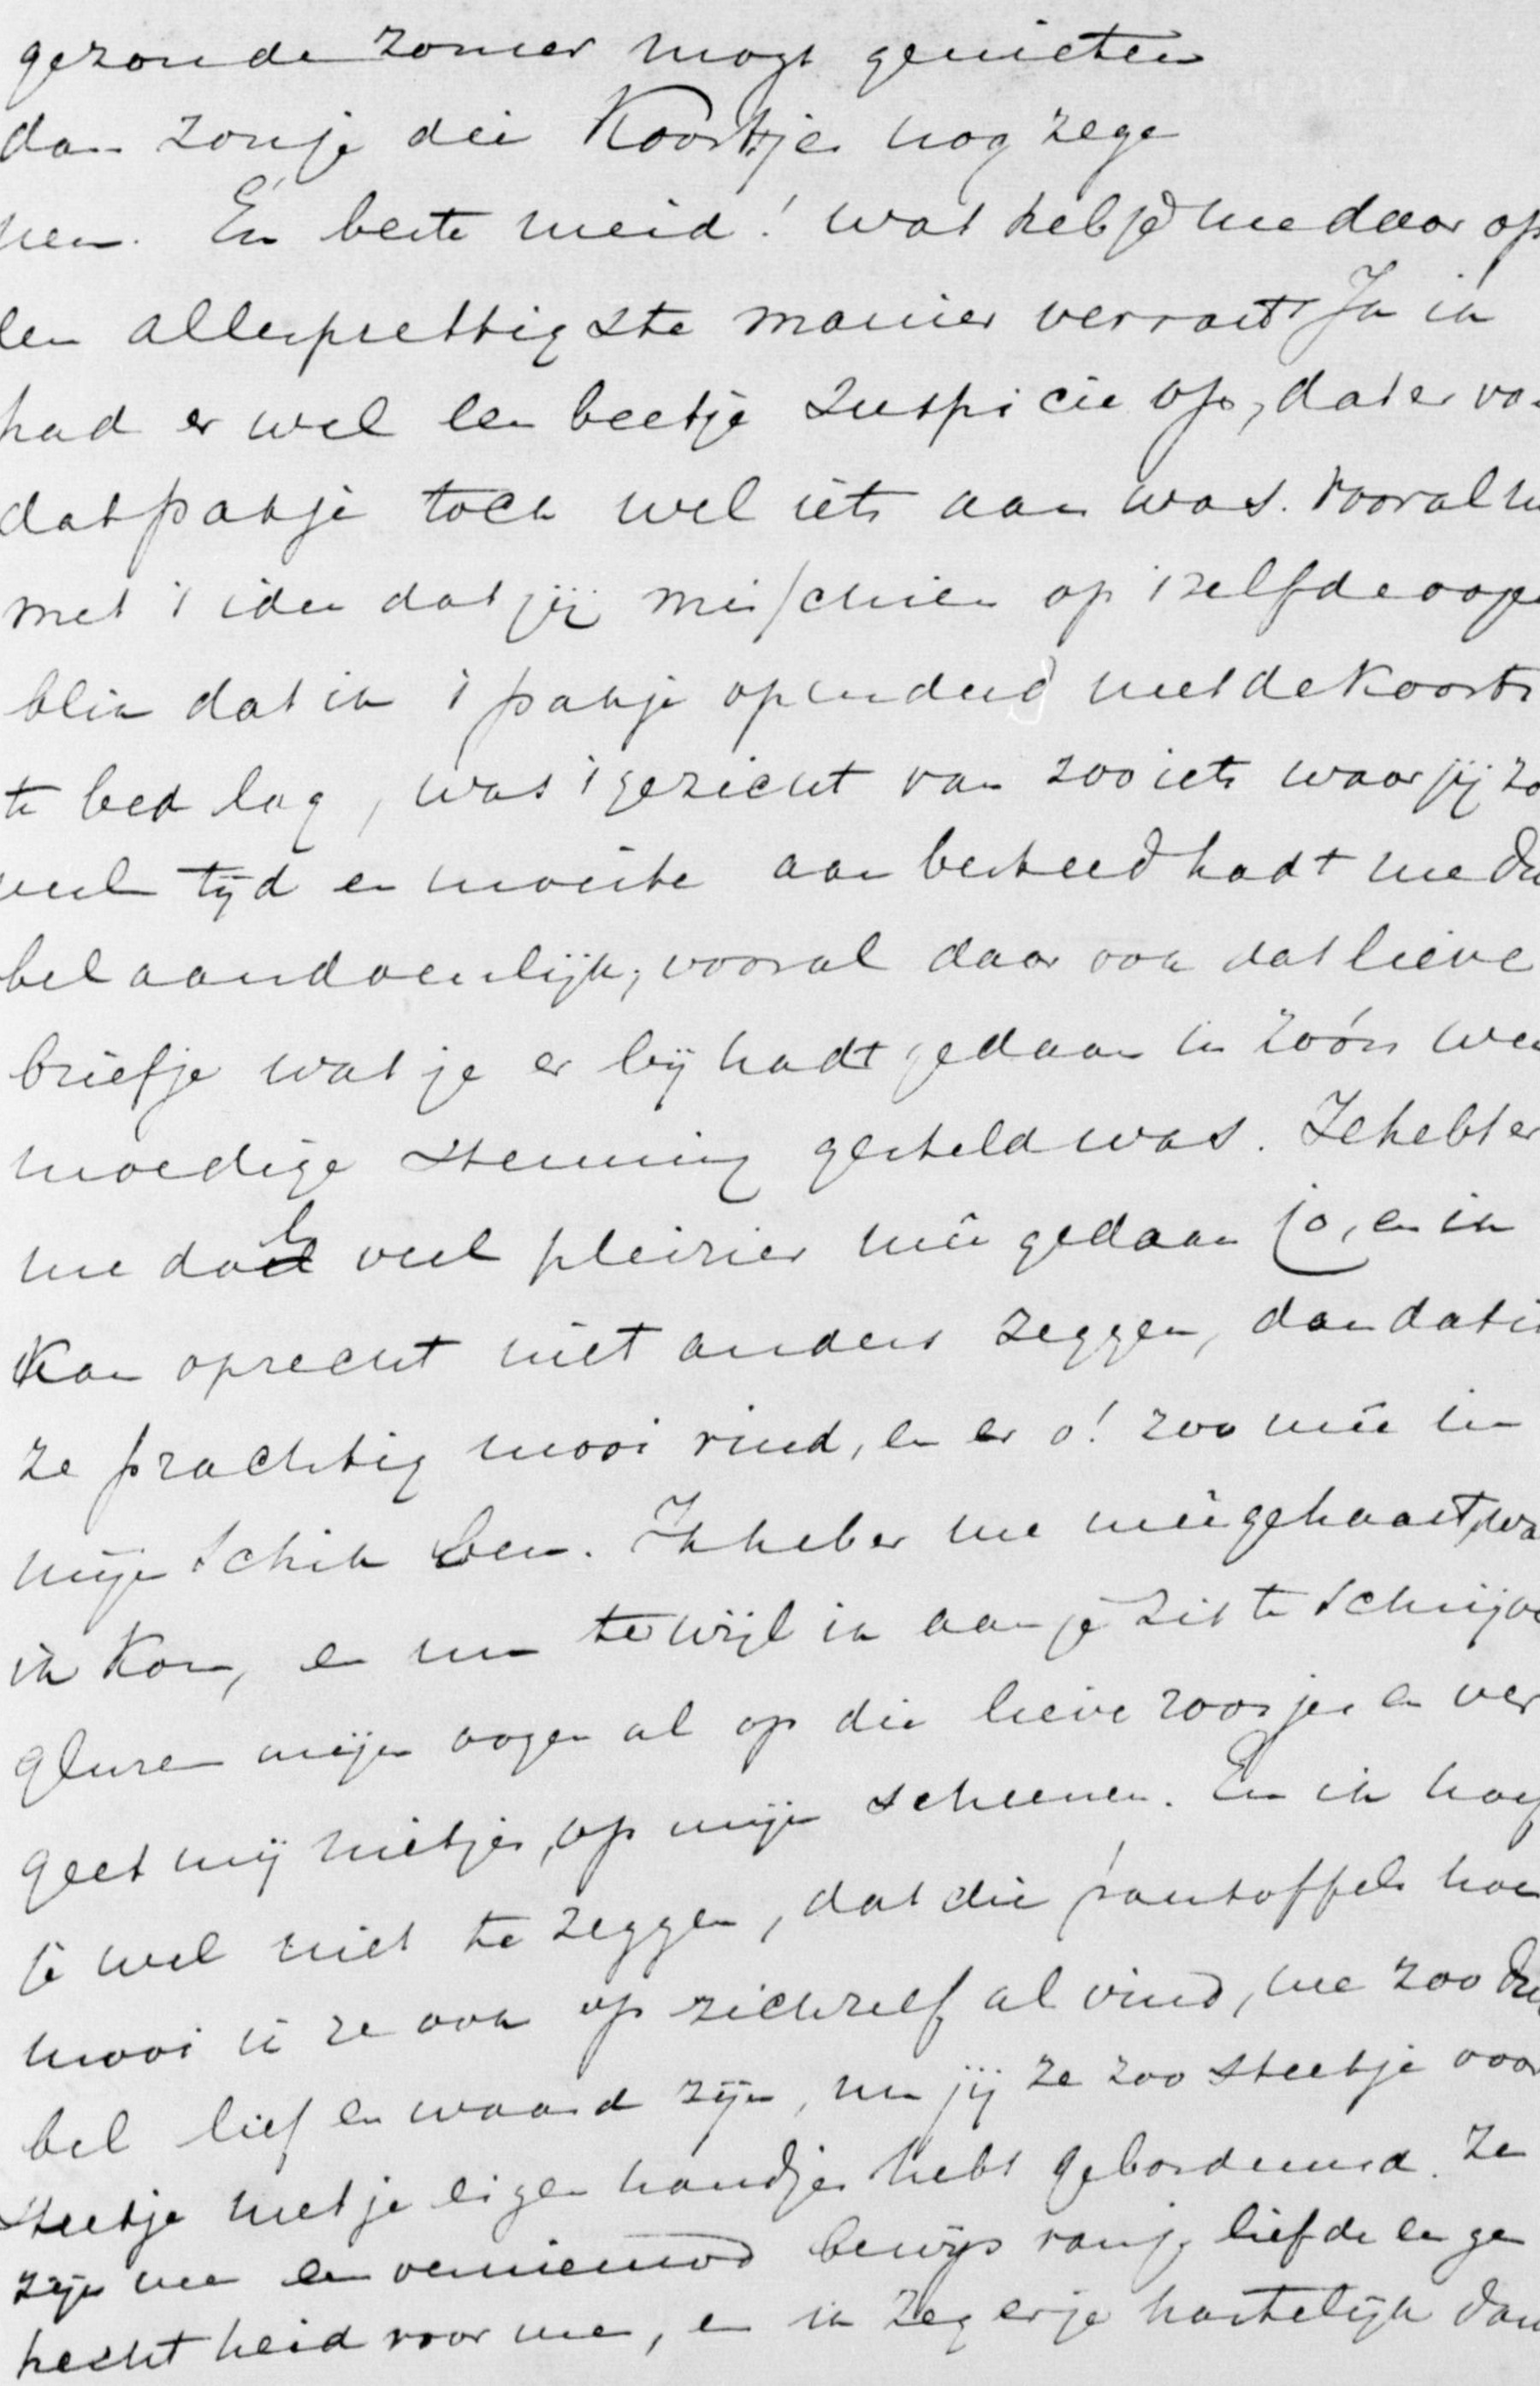 gezonde zomer mogt genieten
dan zou je die Koortsjes nog zege
nen. En beste meid! wat heb je me daar op
den allerprettigste manier verrast Ja ik
had er wel een beetje suspicie op, dat er van
dat pakje toch wel iets aan was. Vooral nu
met 't idee dat jij misschien op 't zelfde oogen
blik dat ik 't pakje opende met de Koorts
te bed lag, was 't gezicht van zoo iets waar jij zo
veel tijd en moeite aan besteed hadt me du
bel aandoenlijk, vooral daar ook dat lieve
briefje wat je er bij hadt gedaan in zóón wee
moedige stemming gesteld was. Je hebt er
me dol veel pleizier mêe gedaan Jo, en ik
Kan oprecht niet anders zeggen, dan dat ik
ze prachtig mooi vind, en er o! zoo mêe in
mijn schik ben. Ik heb er me mêe gehaast, wa
ik Kon, en nu terwijl ik aan je zit te schrijve
gluren mijn oogen al op die lieve roosjes en ver
geet mij nietjes, op mijn scheenen. En ik hoef
je wel niet te zeggen, dat die pantoffels hoe
mooi ik ze ook op zichzelf al vind, me zoo du
bel lief en waard zijn, nu jij ze zoo steekje voor
steekje met je eigen handjes hebt geborduurd. Ze
zijn me een vernieuwd bewijs van je liefde en ge
hechtheid voor me, en ik zeg er je hartelijk dan